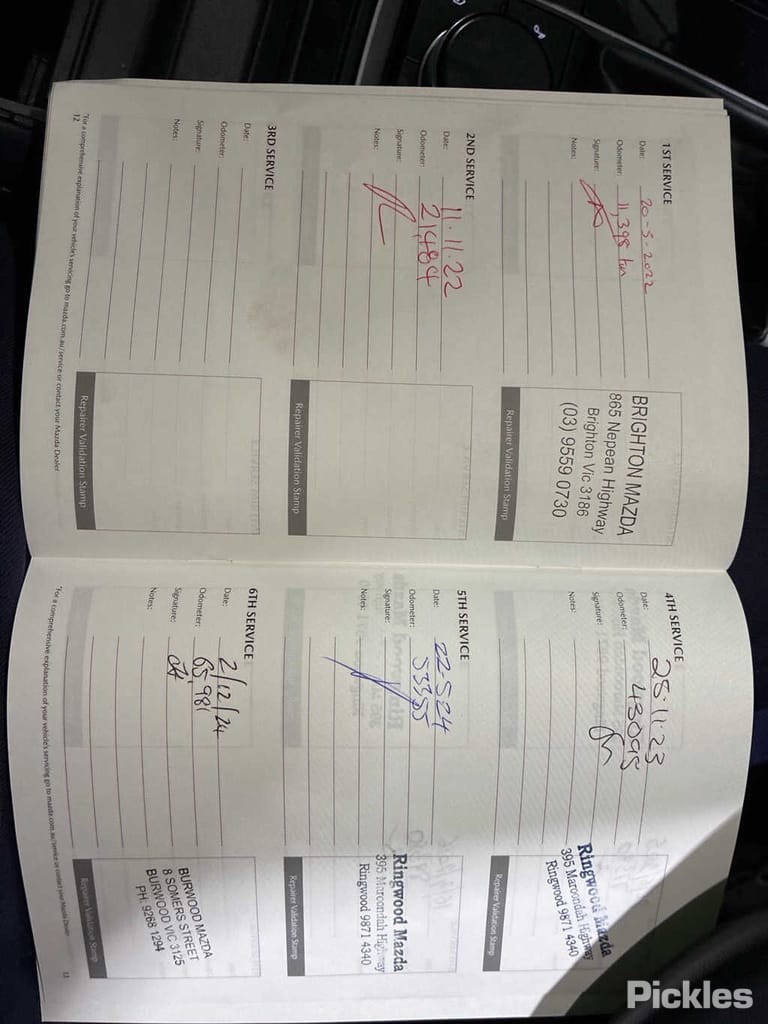 1ST SERVICE
Date: 20-5-2022
Odometer: 11,395 km
Signature:
Notes:
BRIGHTON MAZDA
865 Nepean Highway
Brighton Vic 3186
(03) 9559 0730
Repairer Validation Stamp
2ND SERVICE
Date: 11.11.22
Odometer: 21484
Signature:
Notes:
Repairer Validation Stamp
3RD SERVICE
Date:
Odometer:
Signature:
Notes:
Repairer Validation Stamp
*For a comprehensive explanation of your vehicle's servicing go to mazda.com.au/service or contact your Mazda Dealer
12
4TH SERVICE
Date: 28.11.23
Odometer: 43095
Signature:
Notes:
Ringwood Mazda
395 Maroondah Highway
Ringwood 9871 4340
Repairer Validation Stamp
5TH SERVICE
Date: 22-5-24
Odometer: 53355
Signature:
Notes:
Ringwood Mazda
395 Maroondah Highway
Ringwood 9871 4340
Repairer Validation Stamp
6TH SERVICE
Date: 2/12/24
Odometer: 65,981
Signature:
Notes:
BURWOOD MAZDA
8 SOMERS STREET
BURWOOD VIC 3125
PH: 9268 1294
Repairer Validation Stamp
*For a comprehensive explanation of your vehicle's servicing go to mazda.com.au/service or contact your Mazda Dealer
13
Pickles